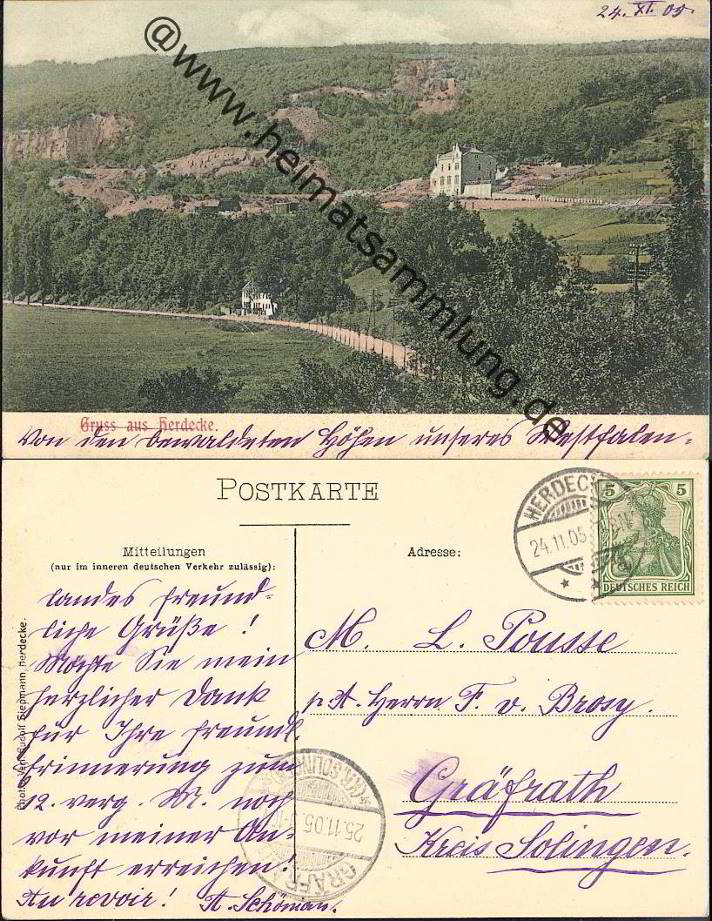 24. XI. 05.
@www.heimatsammlung.de
Gruss aus Herdecke.
Von den bewaldeten Höhen unseres Westfalen-
POSTKARTE
Mitteilungen
(nur im inneren deutschen Verkehr zulässig):
Adresse:
HERDECKE
24.11.05
5 5
DEUTSCHES REICH
landes freund-
liche Grüße!
Möchte Sie mein
herzlicher Dank
für Ihre freundl.
Erinnerung zum
12. verg. M. noch
vor meiner An-
kunft erreichen!
Au revoir! A. Schöman.
M. L. Pousse
p. A. Herrn F. v. Brosy.
Gräfrath
Kreis Solingen.
25.11.05
GRÄFR
Rudolf Siepmann, Herdecke.